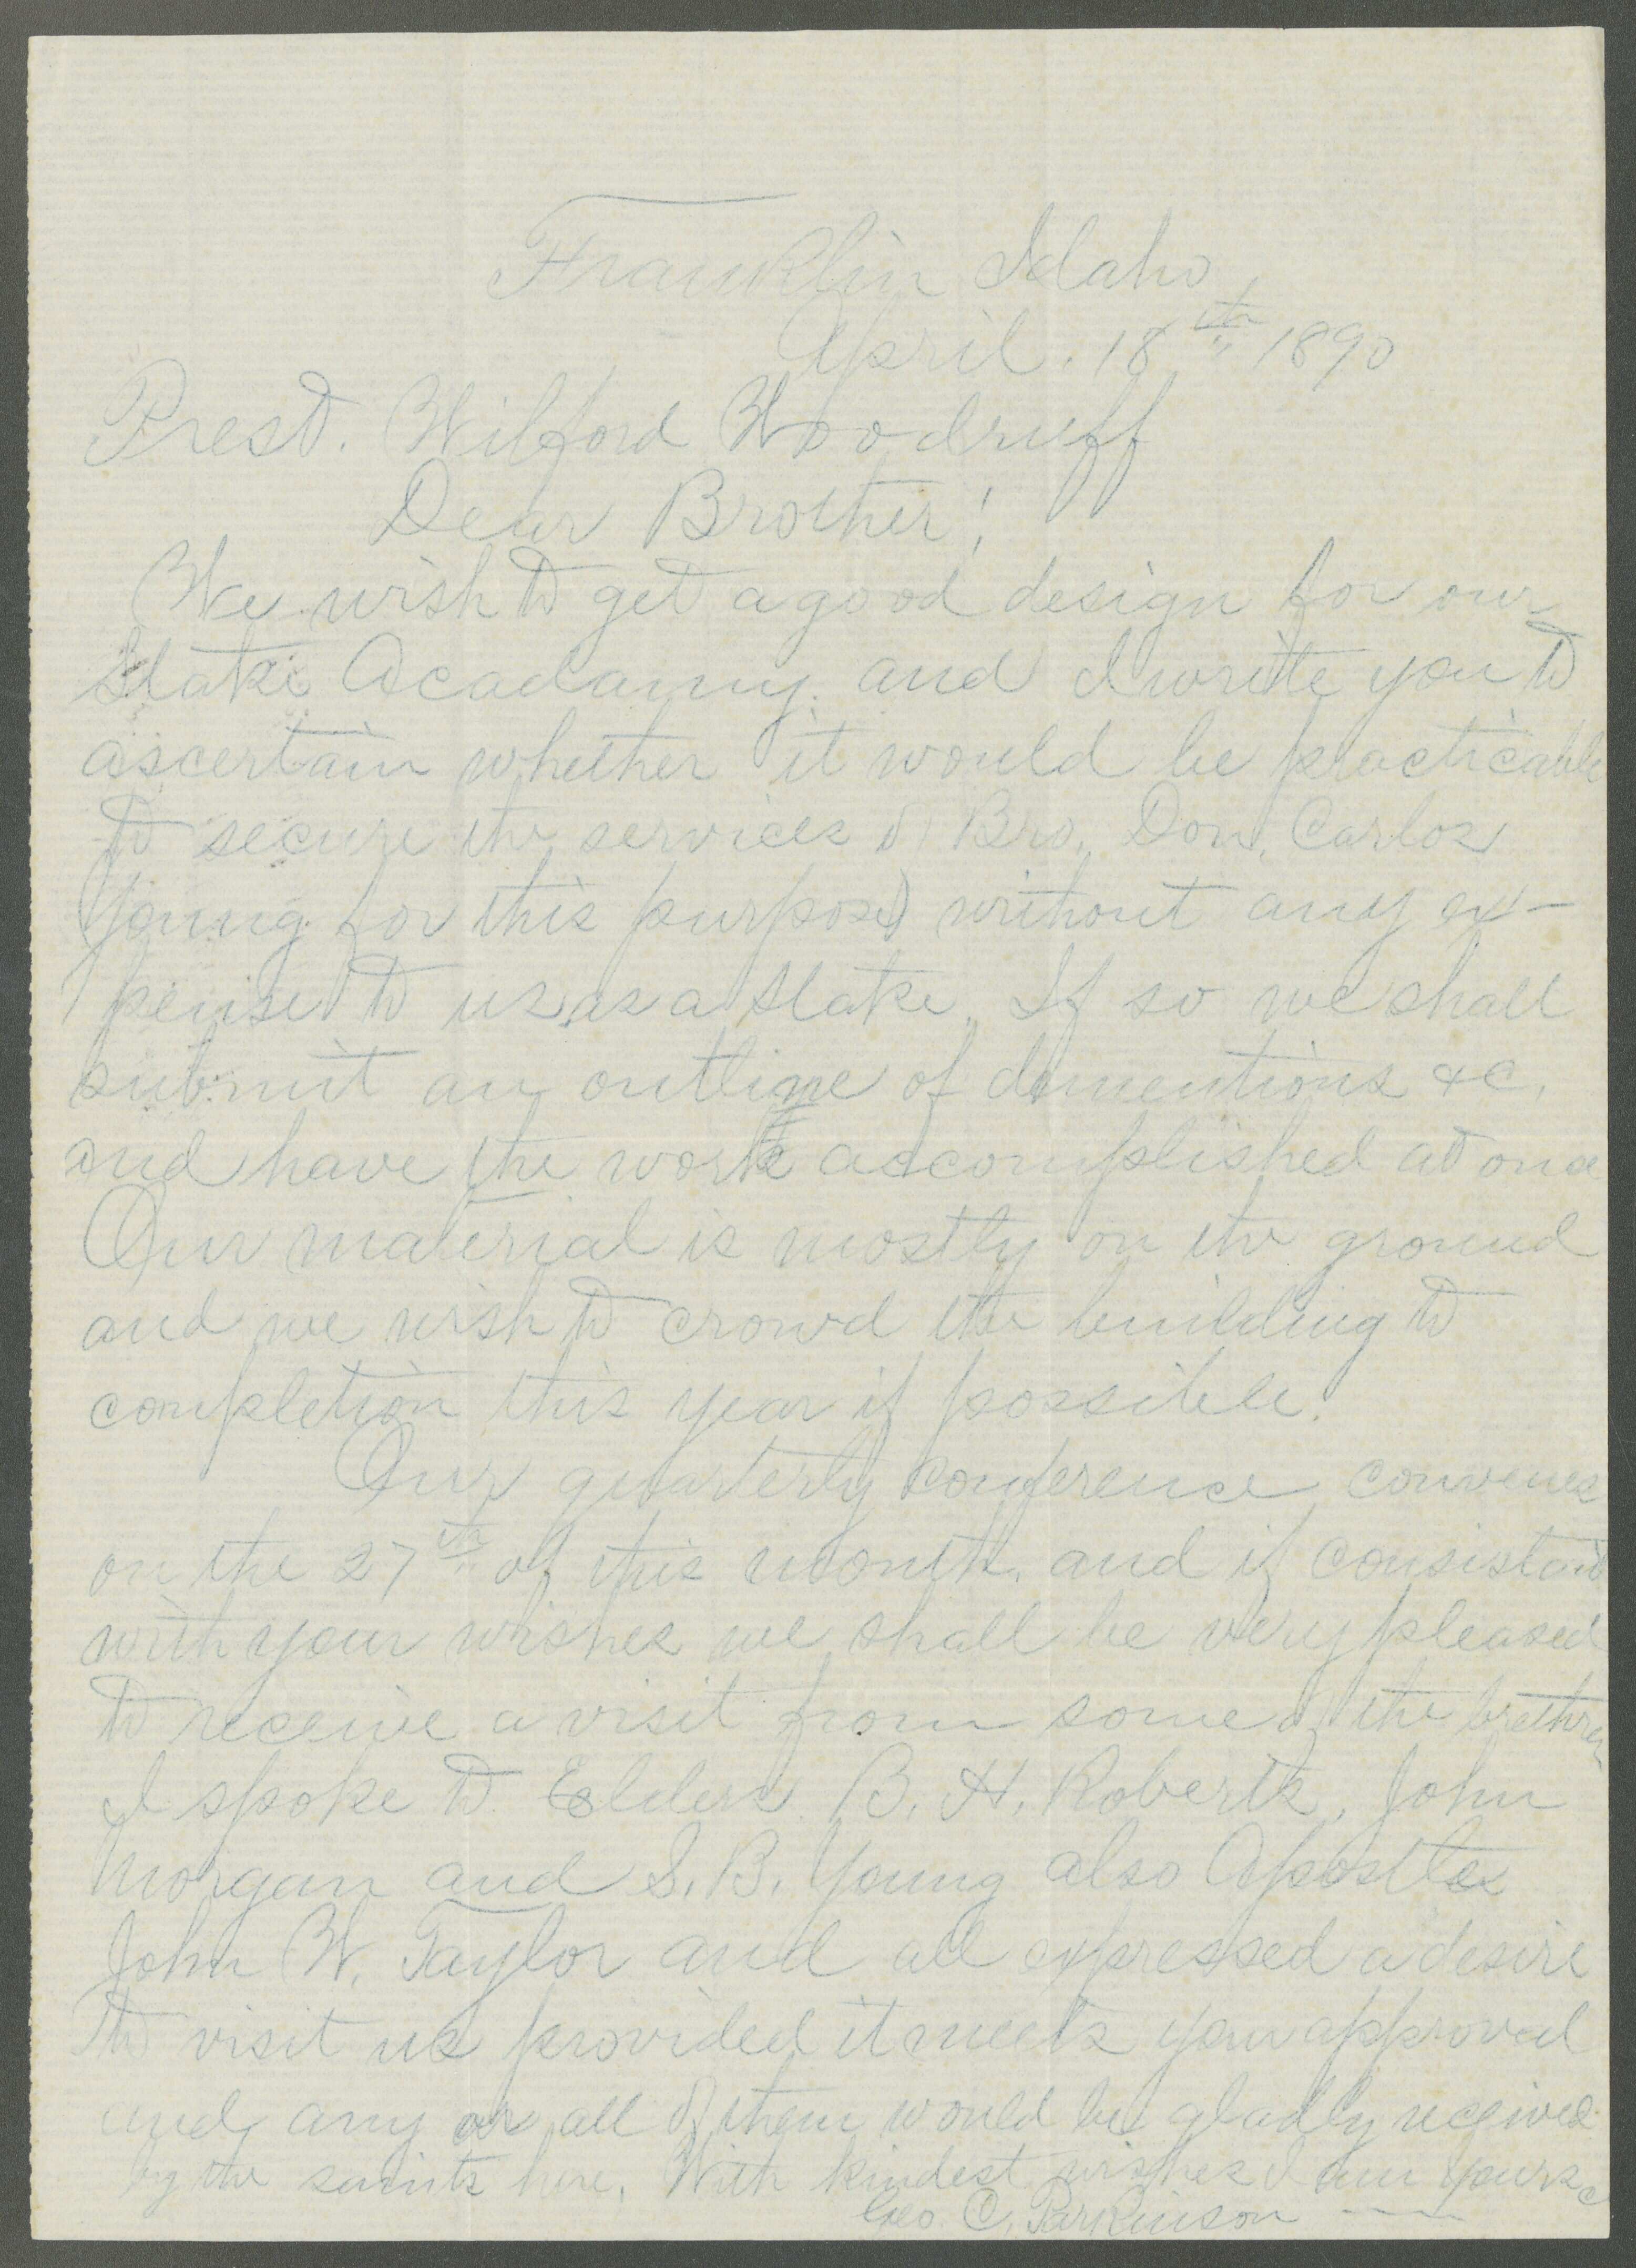 Franklin Idaho
April. 18th 1890
Prest. Wilford Woodruff
Dear Brother!
We wish to get a good design for our
Stake Acadamy. and I write you to
ascertain whether it would be practicable
to secure the services of Bro. Don. Carlos
Young for this purpose without any ex-
pense to us as a Stake. If so we shall
submit an outline of dimentions &c.
and have the work accomplished at once
Our material is mostly on the ground
and we wish to crowd the building to
completion this year if possible.
Our quarterly conference convenes
on the 27th of this month. and if consistant
with your wishes we shall be very pleased
to receive a visit from some of the brethren
I spoke to Elders B. H. Roberts, John
Morgan and S. B. Young also Apostles
John W. Taylor and all expressed a desire
to visit us provided it meets your approval
and any or all of them would be gladly received
by the saints here. With kindest wishes I am Yours &c
Geo. C. Parkinson